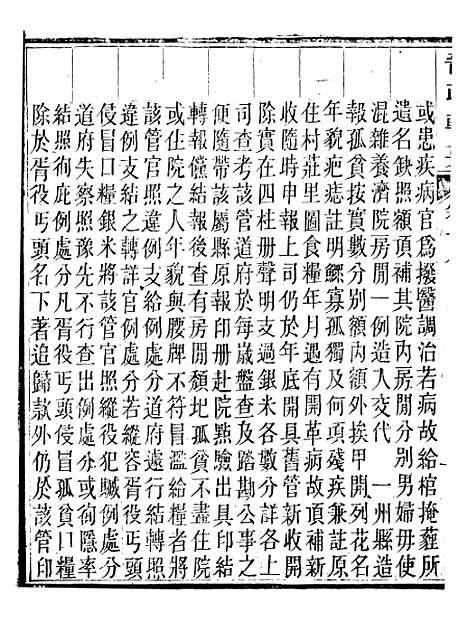 或患疾病官爲撥醫調治若病故給棺掩葬所
遺名缺照額頂補其院內房間分別男婦毋使
混雜養濟院房間一例造入交代　一州縣造
報孤貧按實數分別額內額外挨甲開列花名
年貌疤痣註明鰥寡孤獨及何項殘疾兼註原
住村莊里圖食糧年月遇有開革病故頂補新
收隨時申報上司仍於年底開具舊管新收開
除實在四柱册聲明支過銀米各數分詳各上
司查考該管道府於每歲盤查及踏勘公事之
便隨帶該屬縣原報印册赴院點驗出具印結
轉報儻結報後查有房間頽圮孤貧不盡住院
或住院之人年貌與腰牌不符冒濫給領者將
該管官照違例支給例處分若縱容胥役丐頭
違例支結之轉詳官例處分道府遠行
侵冒口糧銀米將該管官照縱役犯贓例處分
道府失察照豫先不行查出例處分或徇隱率
結照徇庇例處分凡胥役丐頭侵冒孤貧口糧
除於胥役丐頭名下著追歸款外仍於該管印